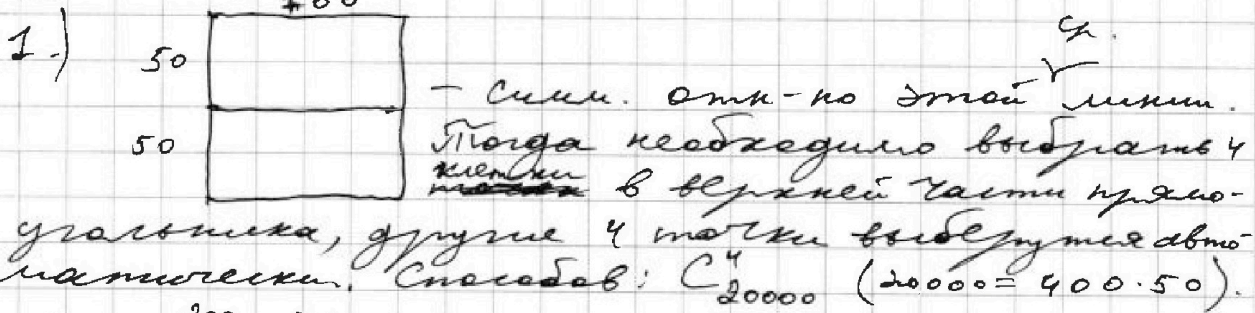 400
1.) 50
ср.
– симм. отн-но этой линии.
50
Тогда необходимо выбрать 4
клетки в верхней части прямо-
угольника, другие 4 точки выберутся авто-
матически. Способов: C⁴₂₀₀₀₀ (20000 = 400·50).